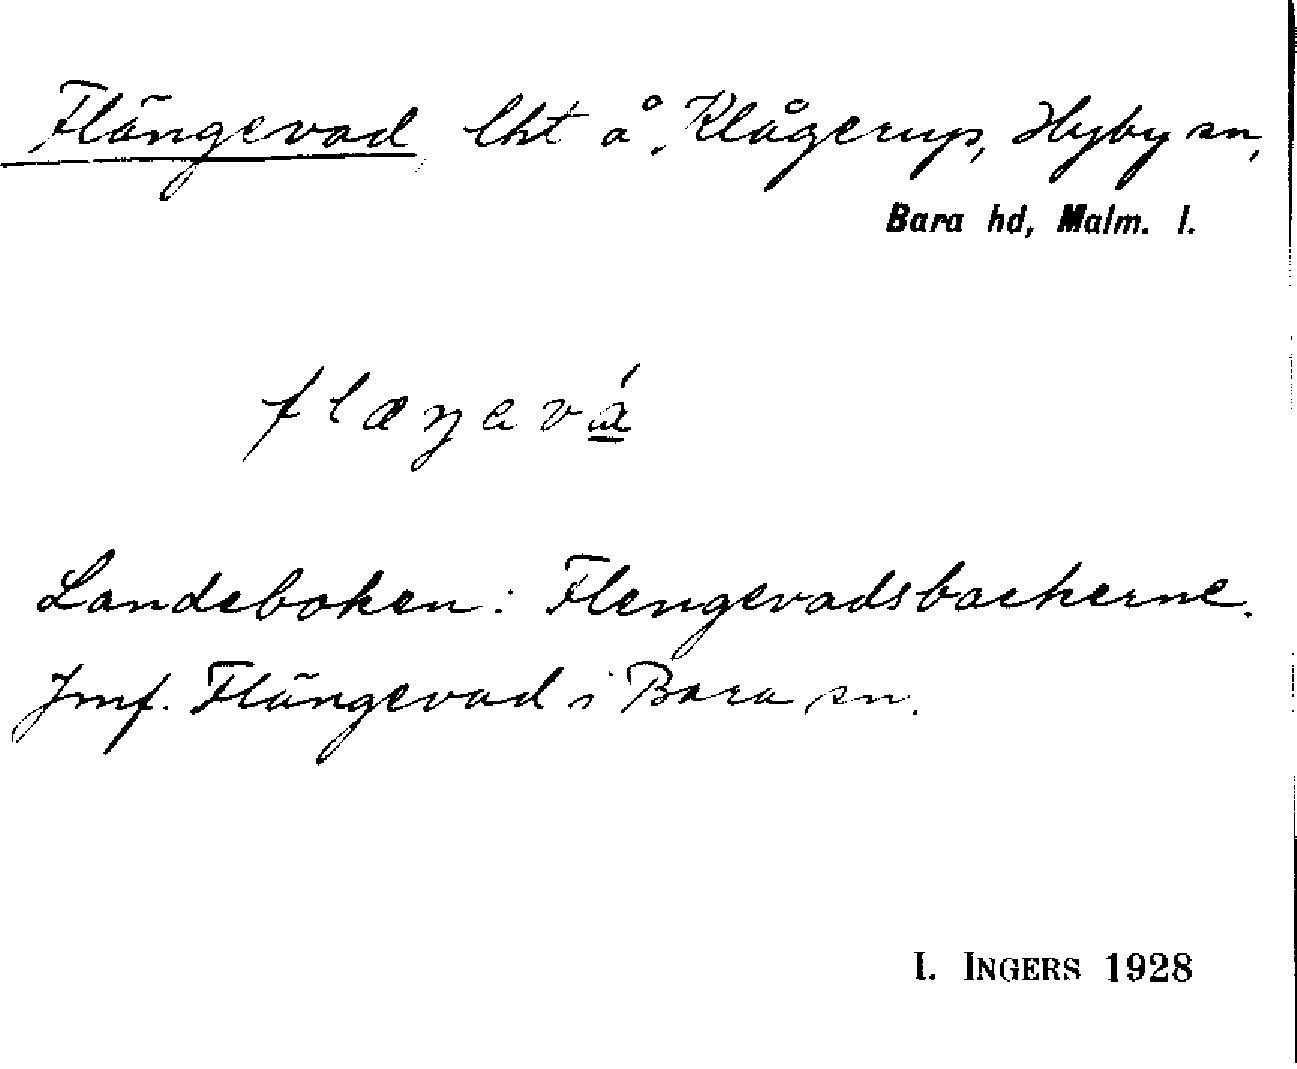 Flängevad lht å Klågerup, Hyby sn,
Bara hd, Malm. l.
flæŋevá
Landeboken: Flengevadsbackerne.
Jmf. Flängevad i Bara sn.
I. INGERS 1928